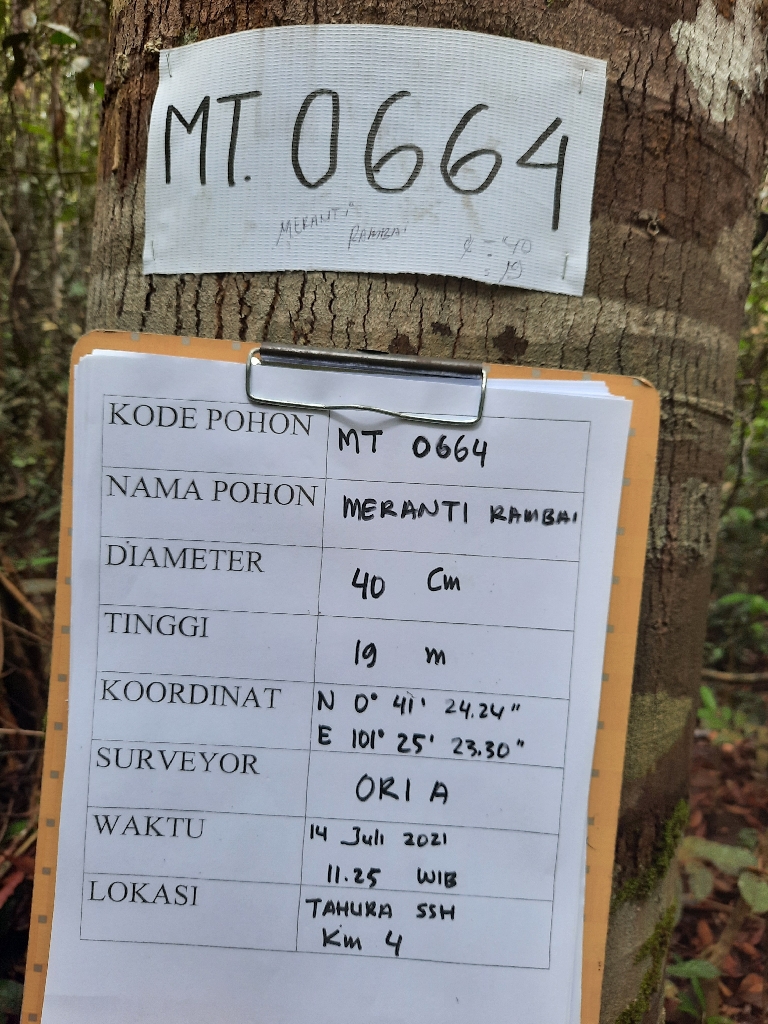 MT. 0664
MERANTI
RAMBAI
= 40
= 19
KODE POHON
MT 0664
NAMA POHON
MERANTI RAMBAI
DIAMETER
40 Cm
TINGGI
19 m
KOORDINAT
N 0° 41' 24.24"
E 101° 25' 23.30"
SURVEYOR
ORI A
WAKTU
14 Juli 2021
11.25 WIB
LOKASI
TAHURA SSH
Km 4